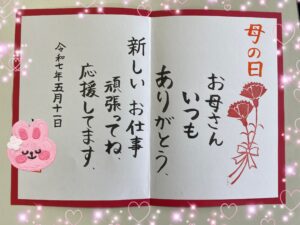 母の日
お母さん
いつも
ありがとう。
新しい お仕事
頑張ってね。
応援してます。
令和七年五月十一日